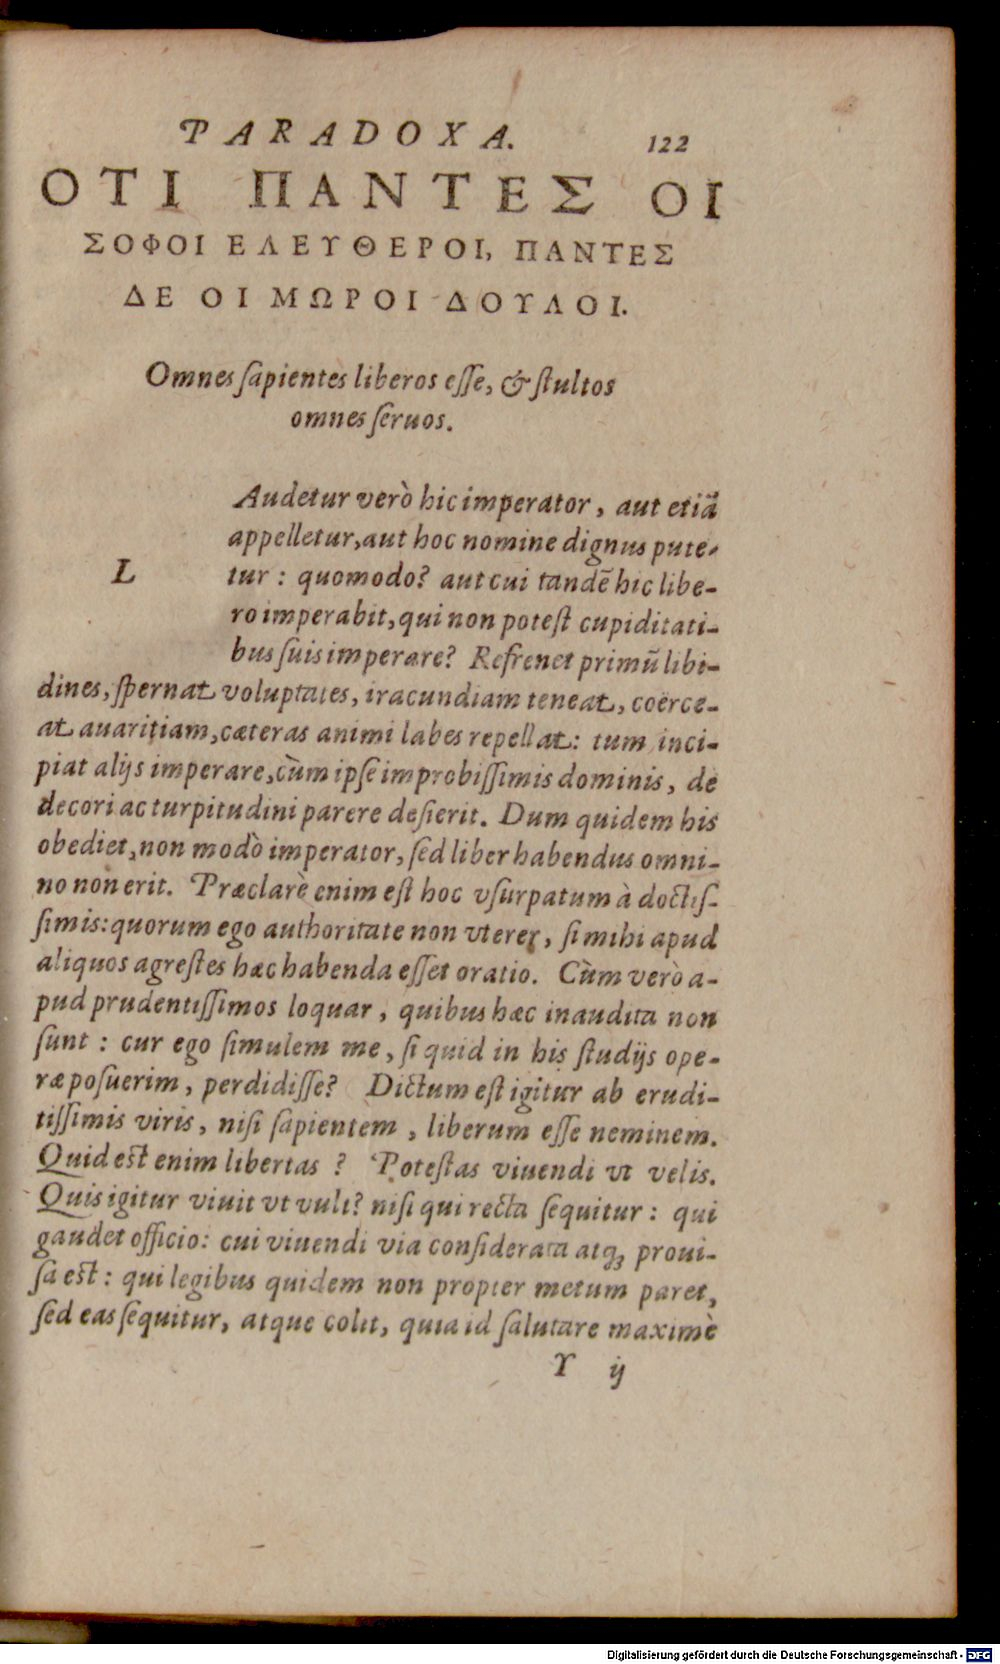 PARADOXA. 122
ΟΤΙ ΠΑΝΤΕΣ ΟΙ
ΣΟΦΟΙ ΕΛΕΥΘΕΡΟΙ, ΠΑΝΤΕΣ
ΔΕ ΟΙ ΜΩΡΟΙ ΔΟΥΛΟΙ.
Omnes ſapientes liberos eſſe, & ſtultos
omnes ſeruos.
L
Audetur verò hic imperator, aut etiã
appelletur, aut hoc nomine dignus pute-
tur: quomodo? aut cui tandẽ hic libe-
ro imperabit, qui non poteſt cupiditati-
bus ſuis imperare? Refrenet primũ libi-
dines, ſpernat voluptates, iracundiam teneat, coërce-
at auaritiam, cæteras animi labes repellat: tum inci-
piat alijs imperare, cùm ipſe improbiſſimis dominis, de
decori ac turpitudini parere deſierit. Dum quidem his
obediet, non modò imperator, ſed liber habendus omni-
no non erit. Præclarè enim eſt hoc vſurpatum à doctiſ-
ſimis: quorum ego authoritate non vterer, ſi mihi apud
aliquos agreſtes hæc habenda eſſet oratio. Cùm verò a-
pud prudentiſſimos loquar, quibus hæc inaudita non
ſunt: cur ego ſimulem me, ſi quid in his ſtudijs ope-
ræ poſuerim, perdidiſſe? Dictum eſt igitur ab erudi-
tiſſimis viris, niſi ſapientem, liberum eſſe neminem.
Quid eſt enim libertas? Poteſtas viuendi vt velis.
Quis igitur viuit vt vult? niſi qui recta ſequitur: qui
gaudet officio: cui viuendi via conſiderata atqꝫ proui-
ſa eſt: qui legibus quidem non propter metum paret,
ſed eas ſequitur, atque colit, quia id ſalutare maximè
Y ij
Digitalisierung gefördert durch die Deutsche Forschungsgemeinschaft - DFG